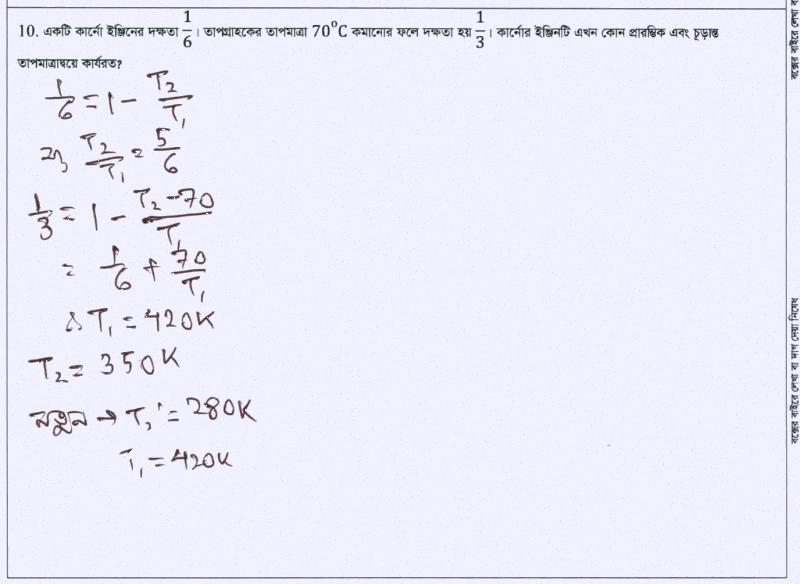 10. একটি কার্নো ইঞ্জিনের দক্ষতা 1/6। তাপগ্রাহকের তাপমাত্রা 70°C কমানোর ফলে দক্ষতা হয় 1/3। কার্নোর ইঞ্জিনটি এখন কোন প্রারম্ভিক এবং চূড়ান্ত
তাপমাত্রাদ্বয়ে কার্যরত?
1/6 = 1 - T₂/T₁
⇒ T₂/T₁ = 5/6
1/3 = 1 - (T₂-70)/T₁
= 1/6 + 70/T₁
∴ T₁ = 420K
T₂ = 350K
নতুন → T₂' = 280K
T₁ = 420K
বক্সের বাইরে লেখা বা দাগ দেয়া নিষেধ
বক্সের বাইরে লেখা ব